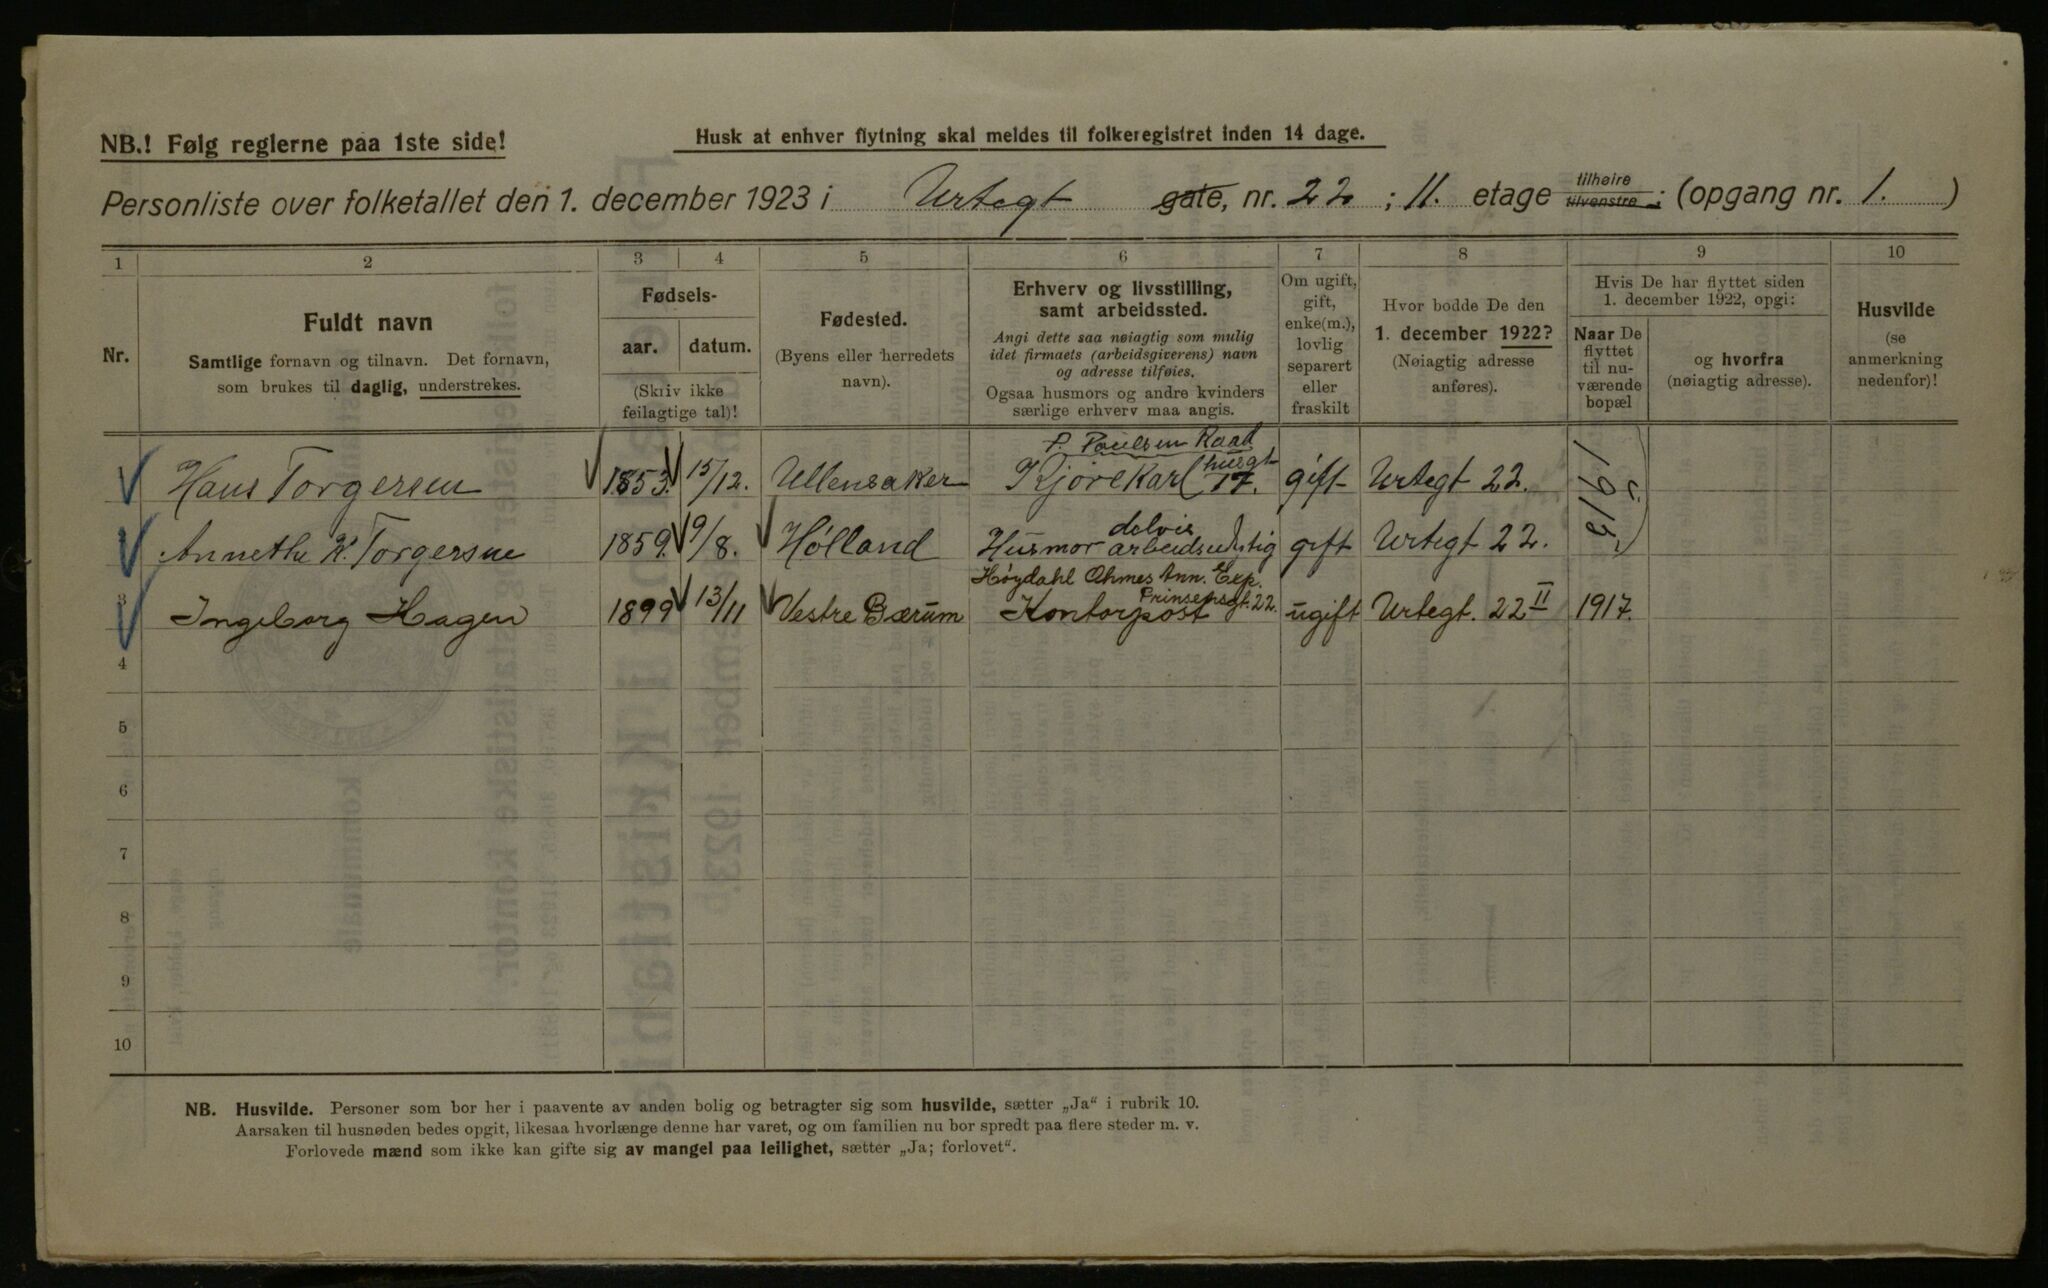 NB.! Følg reglerne paa 1ste side!
Husk at enhver flytning skal meldes til folkeregistret inden 14 dage.
Personliste over folketallet den 1. december 1923 i Urtegt gate, nr. 22; 11. etage tilhøire tilvenstre; (opgang nr. 1.)
1 2 3 4 5 6 7 8 9 10
Nr.
Fuldt navn
Samtlige fornavn og tilnavn. Det fornavn,
som brukes til daglig, understrekes.
Fødsels-
aar. datum.
(Skriv ikke
feilagtige tal)!
Fødested.
(Byens eller herredets
navn).
Erhverv og livsstilling,
samt arbeidssted.
Angi dette saa nøiagtig som mulig
idet firmaets (arbeidsgiverens) navn
og adresse tilføies.
Ogsaa husmors og andre kvinders
særlige erhverv maa angis.
Om ugift,
gift,
enke(m.),
lovlig
separert
eller
fraskilt
Hvor bodde De den
1. december 1922?
(Nøiagtig adresse
anføres).
Hvis De har flyttet siden
1. december 1922, opgi:
Naar De
flyttet
til nu-
værende
bopæl
og hvorfra
(nøiagtig adresse).
Husvilde
(se
anmerkning
nedenfor)!
P. Poulsen Raad
husgt
Hans Torgersen 1853. 15/12. Ullensaker Kjørekarl 17. gift Urtegt 22. 1915
delvis
Annethe K. Torgersne 1859. 9/8. Hølland Husmor arbeidsudygtig gift Urtegt 22.
Høydahl Ohmes Ann. Exp.
Prinsensgt. 22.
3 Ingeborg Hagen 1899 13/11 Vestre Bærum Kontorpost ugift Urtegt. 22 II 1917.
4
5
6
7
8
9
10
NB. Husvilde. Personer som bor her i paavente av anden bolig og betragter sig som husvilde, sætter „Ja“ i rubrik 10.
Aarsaken til husnøden bedes opgit, likesaa hvorlænge denne har varet, og om familien nu bor spredt paa flere steder m. v.
Forlovede mænd som ikke kan gifte sig av mangel paa leilighet, sætter „Ja; forlovet“.